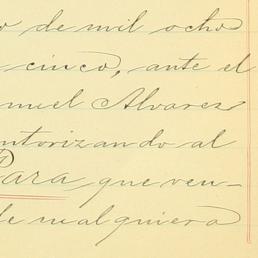 o de mil ocho
cinco, ante el
nuel Alvarez
utorizando al
Para, que ven-
de cualquiera